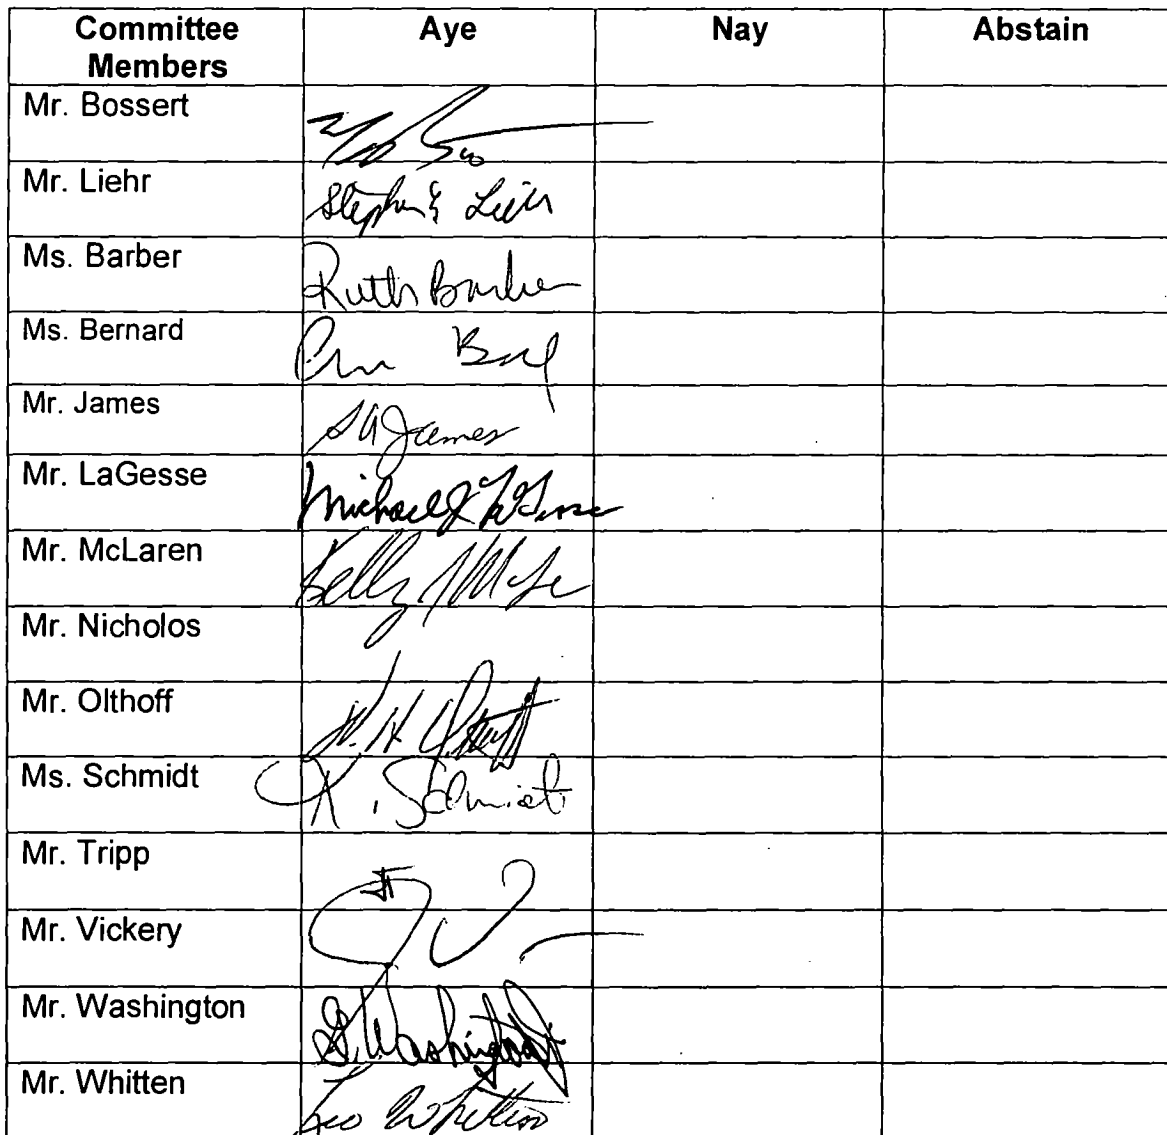 Committee Members Aye Nay Abstain
Mr. Bossert
Mr. Liehr Stephen Liehr
Ms. Barber Ruth Barber
Ms. Bernard
Mr. James SA James
Mr. LaGesse Michael J LaGesse
Mr. McLaren Kelly
Mr. Nicholos
Mr. Olthoff
Ms. Schmidt K. Schmidt
Mr. Tripp
Mr. Vickery
Mr. Washington G. Washington
Mr. Whitten Leo Whitten